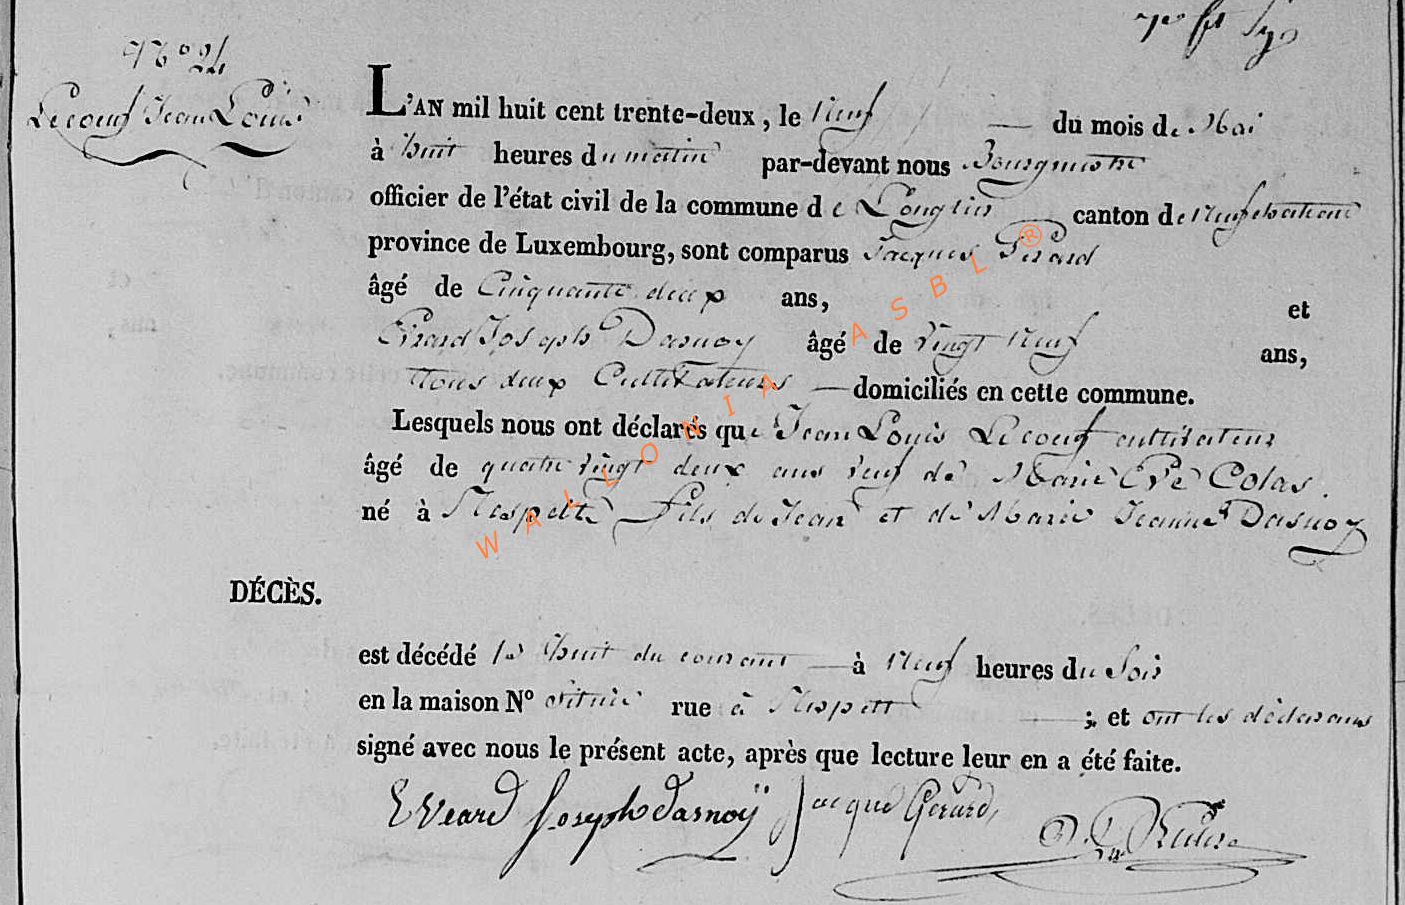 N° 24
Lecoeuf Jean Louis
L'AN mil huit cent trente-deux, le Neuf du mois de Mai
à huit heures du matin par-devant nous Bourgmestre
officier de l'état civil de la commune de Longlier canton de Neufchateau
province de Luxembourg, sont comparus Jacques Gerard
âgé de Cinquante deux ans, et
Evrard Joseph Dasnoy âgé de Vingt Neuf ans,
tous deux Cultivateurs domiciliés en cette commune.
Lesquels nous ont déclarés que Jean Louis Lecoeuf cultivateur
âgé de quatre vingt deux ans veuf de Marie Eve Colas.
né à Respelt fils de Jean et de Marie Jeanne Dasnoy
DÉCÈS.
est décédé le huit du courant à Neuf heures du Soir
en la maison N° située rue à Respelt ; et ont les déclarans
signé avec nous le présent acte, après que lecture leur en a été faite.
Evrard Joseph dasnoÿ Jacque Gerard,
WALLONIA ASBL ®